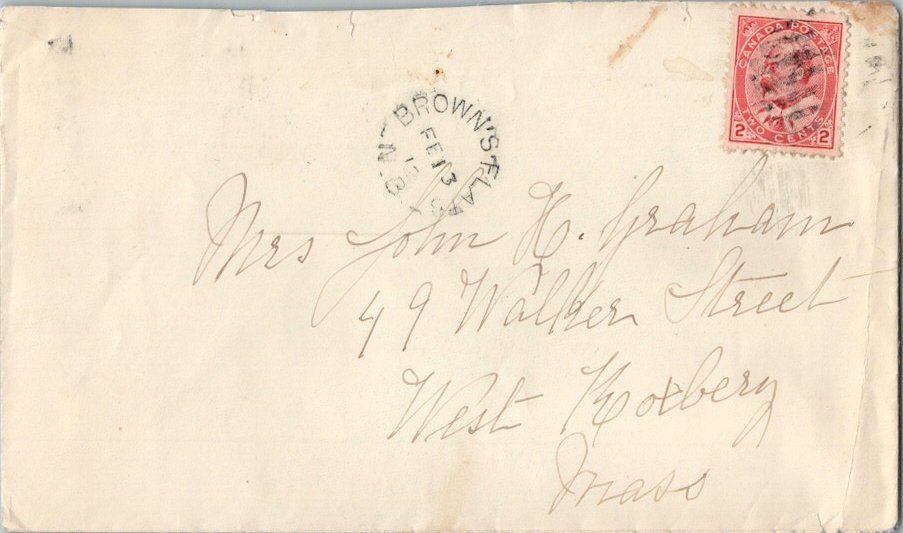 CANADA POSTAGE
2 TWO CENTS 2
BROWN'S FLATS
N.B.
FE 13
Mrs John H. Graham
49 Walker Street
West Roxbery
Mass